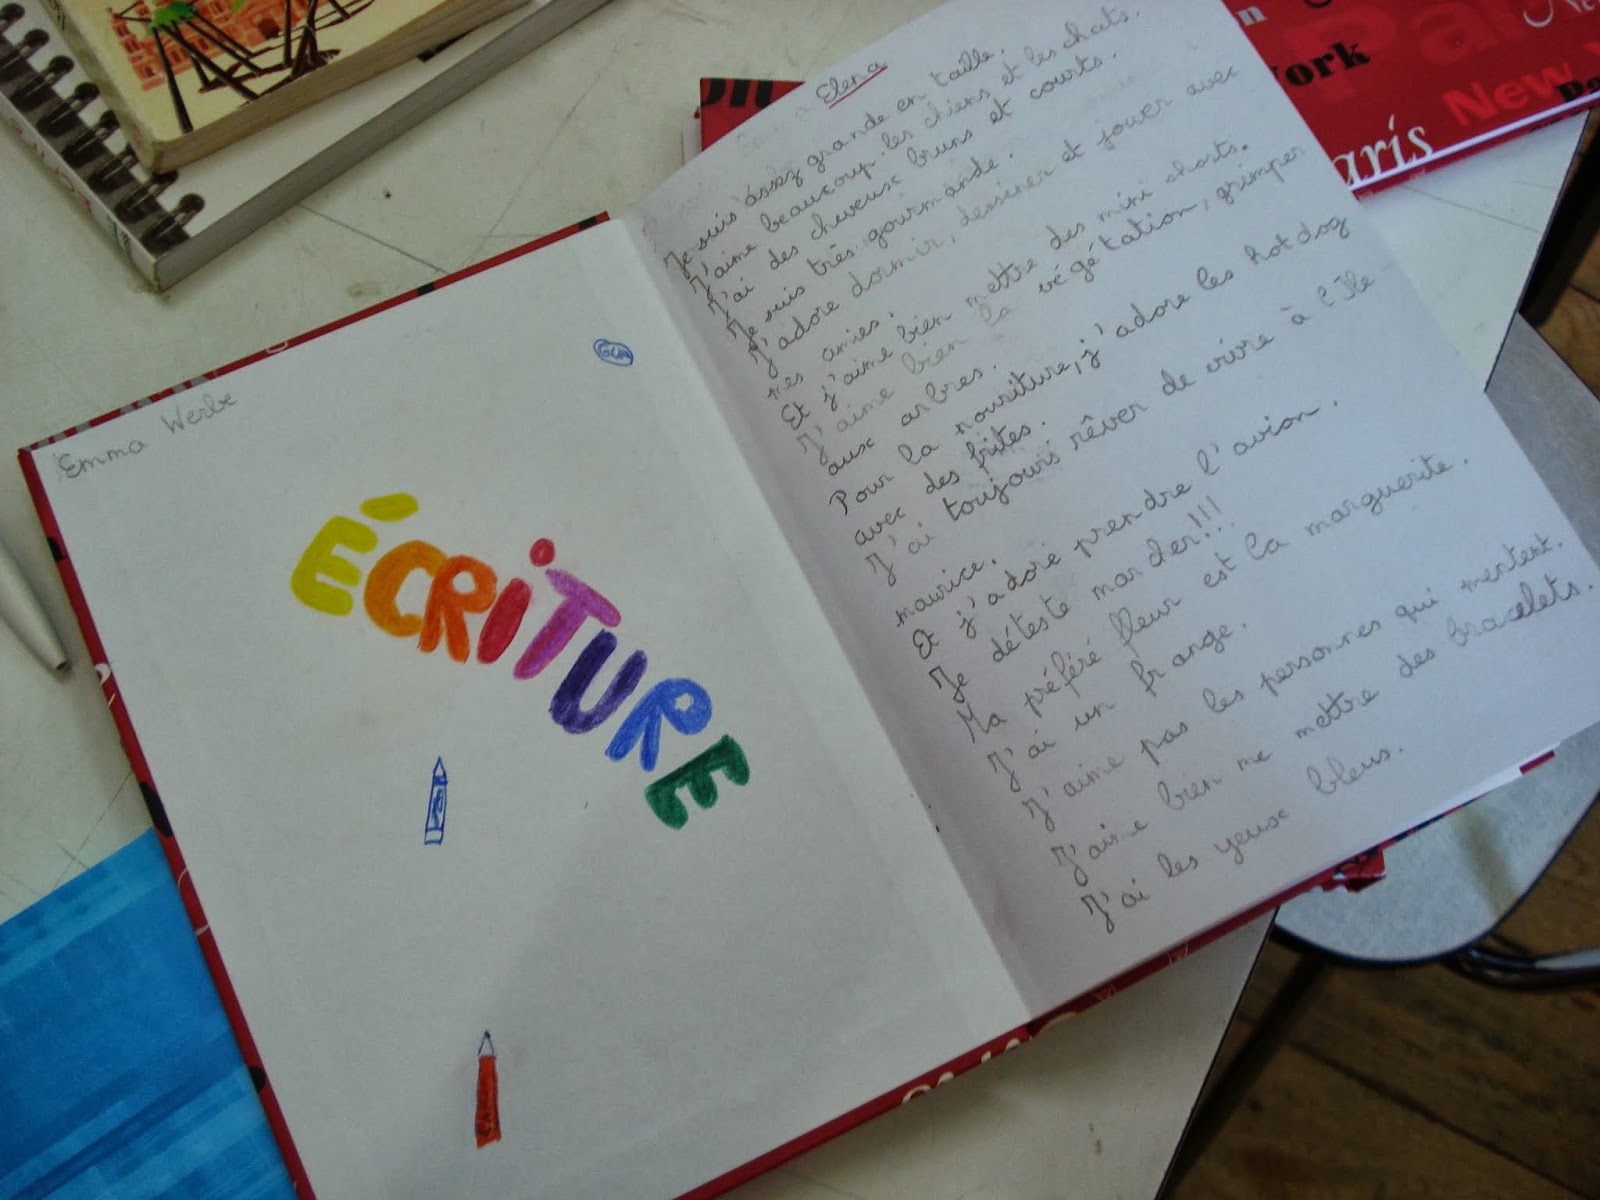 Emma Werbe
ÉCRITURE
Elena
Je suis assez grande en taille.
J'aime beaucoup les chiens et les chats.
J'ai des cheveux bruns et courts.
Je suis très gourmande.
J'adore dormir, dessiner et jouer avec
mes amies.
Et j'aime bien mettre des mini shorts.
J'aime bien la végétation, grimper
aux arbres.
Pour la nouriture, j'adore les hot dog
avec des frites.
J'ai toujours rêver de vivre à l'île
maurice.
Et j'adore prendre l'avion.
Je déteste marcher!!!
Ma préféré fleur est la marguerite.
J'ai un frange.
J'aime pas les personnes qui mentent.
J'aime bien me mettre des bracelets.
J'ai les yeux bleus.
York
Paris
New